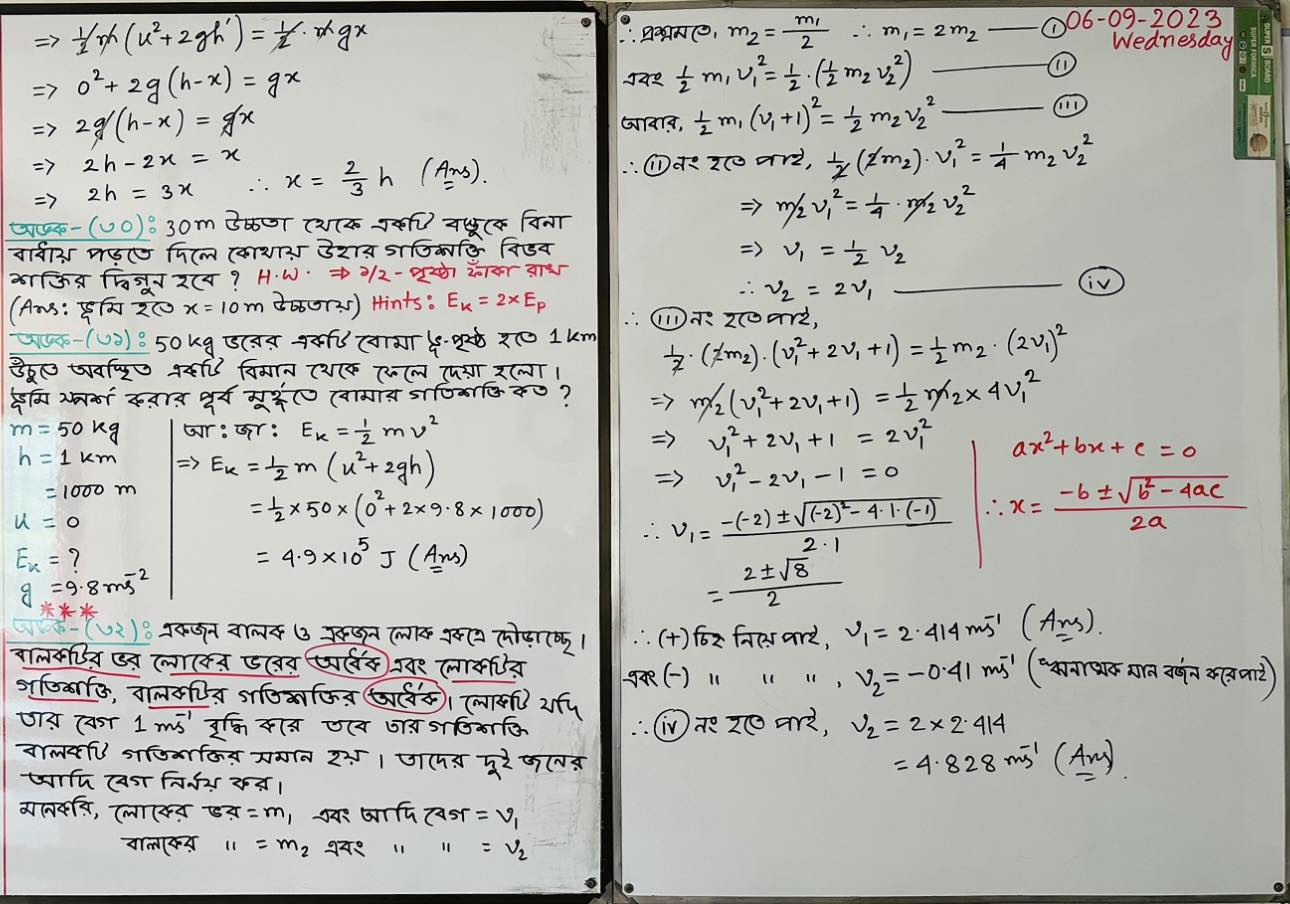 => ½m(u²+2gh') = ½·mgx
=> 0²+2g(h-x) = gx
=> 2g(h-x) = gx
=> 2h-2x = x
=> 2h = 3x ∴ x = 2/3 h (Ans).
অংক-(৩০): 30m উচ্চতা থেকে একটি বস্তুকে বিনা
বাধায় পড়তে দিলে কোথায় উহার গতিশক্তি বিভব
শক্তির দ্বিগুন হবে? H.W. => ১/২-পৃষ্ঠা ফাঁকা রাখ
(Ans: ভূমি হতে x=10m উচ্চতায়) Hints: Eₖ = 2×Eₚ
অংক-(৩১): 50kg ভরের একটি বোমা ভূ-পৃষ্ঠ হতে 1km
উঁচুতে অবস্থিত একটি বিমান থেকে ফেলে দেয়া হলো।
ভূমি স্পর্শ করার পূর্ব মুহূর্তে বোমার গতিশক্তি কত?
m=50kg
h=1km
=1000 m
u = 0
Eₖ = ?
g =9.8ms⁻²
আ:জা: Eₖ = ½mv²
=> Eₖ = ½m(u²+2gh)
= ½×50×(0²+2×9.8×1000)
= 4.9×10⁵ J (Ans)
***
অংক-(৩২): একজন বালক ও একজন লোক একত্রে দৌড়াচ্ছে।
বালকটির ভর লোকের ভরের অর্ধেক এবং লোকটির
গতিশক্তি, বালকটির গতিশক্তির অর্ধেক। লোকটি যদি
তার বেগ 1ms⁻¹ বৃদ্ধি করে তবে তার গতিশক্তি
বালকটি গতিশক্তির সমান হয়। তাদের দুই জনের
আদি বেগ নির্নয় কর।
মনেকরি, লোকের ভর=m₁ এবং আদি বেগ = v₁
বালকের " =m₂ এবং " " = v₂
06-09-2023
Wednesday
SUPER BOARD
SUPER FORMICA
∴ প্রশ্নমতে, m₂ = m₁/2 ∴ m₁ = 2m₂ — (I)
এবং ½m₁v₁² = ½·(½m₂v₂²) — (II)
আবার, ½m₁(v₁+1)² = ½m₂v₂² — (III)
∴ (II) নং হতে পাই, ½(2m₂)·v₁² = ¼m₂v₂²
=> m₂v₁² = ¼·m₂v₂²
=> v₁ = ½v₂
∴ v₂ = 2v₁ — (iv)
∴ (III) নং হতে পাই,
½·(2m₂)·(v₁²+2v₁+1) = ½m₂·(2v₁)²
=> m₂(v₁²+2v₁+1) = ½m₂×4v₁²
=> v₁²+2v₁+1 = 2v₁²
=> v₁²-2v₁-1 = 0
∴ v₁ = (-(-2)±√((-2)²-4·1·(-1)))/(2·1)
= (2±√8)/2
ax²+bx+c=0
∴ x = (-b±√(b²-4ac))/2a
∴ (+) চিহ্ন নিয়ে পাই, v₁ = 2.414ms⁻¹ (Ans).
এবং (-) " " " , v₂ = -0.41 ms⁻¹ (ঋনাত্মক মান বর্জন করে পাই)
∴ (iv) নং হতে পাই, v₂ = 2×2.414
= 4.828 ms⁻¹ (Ans).